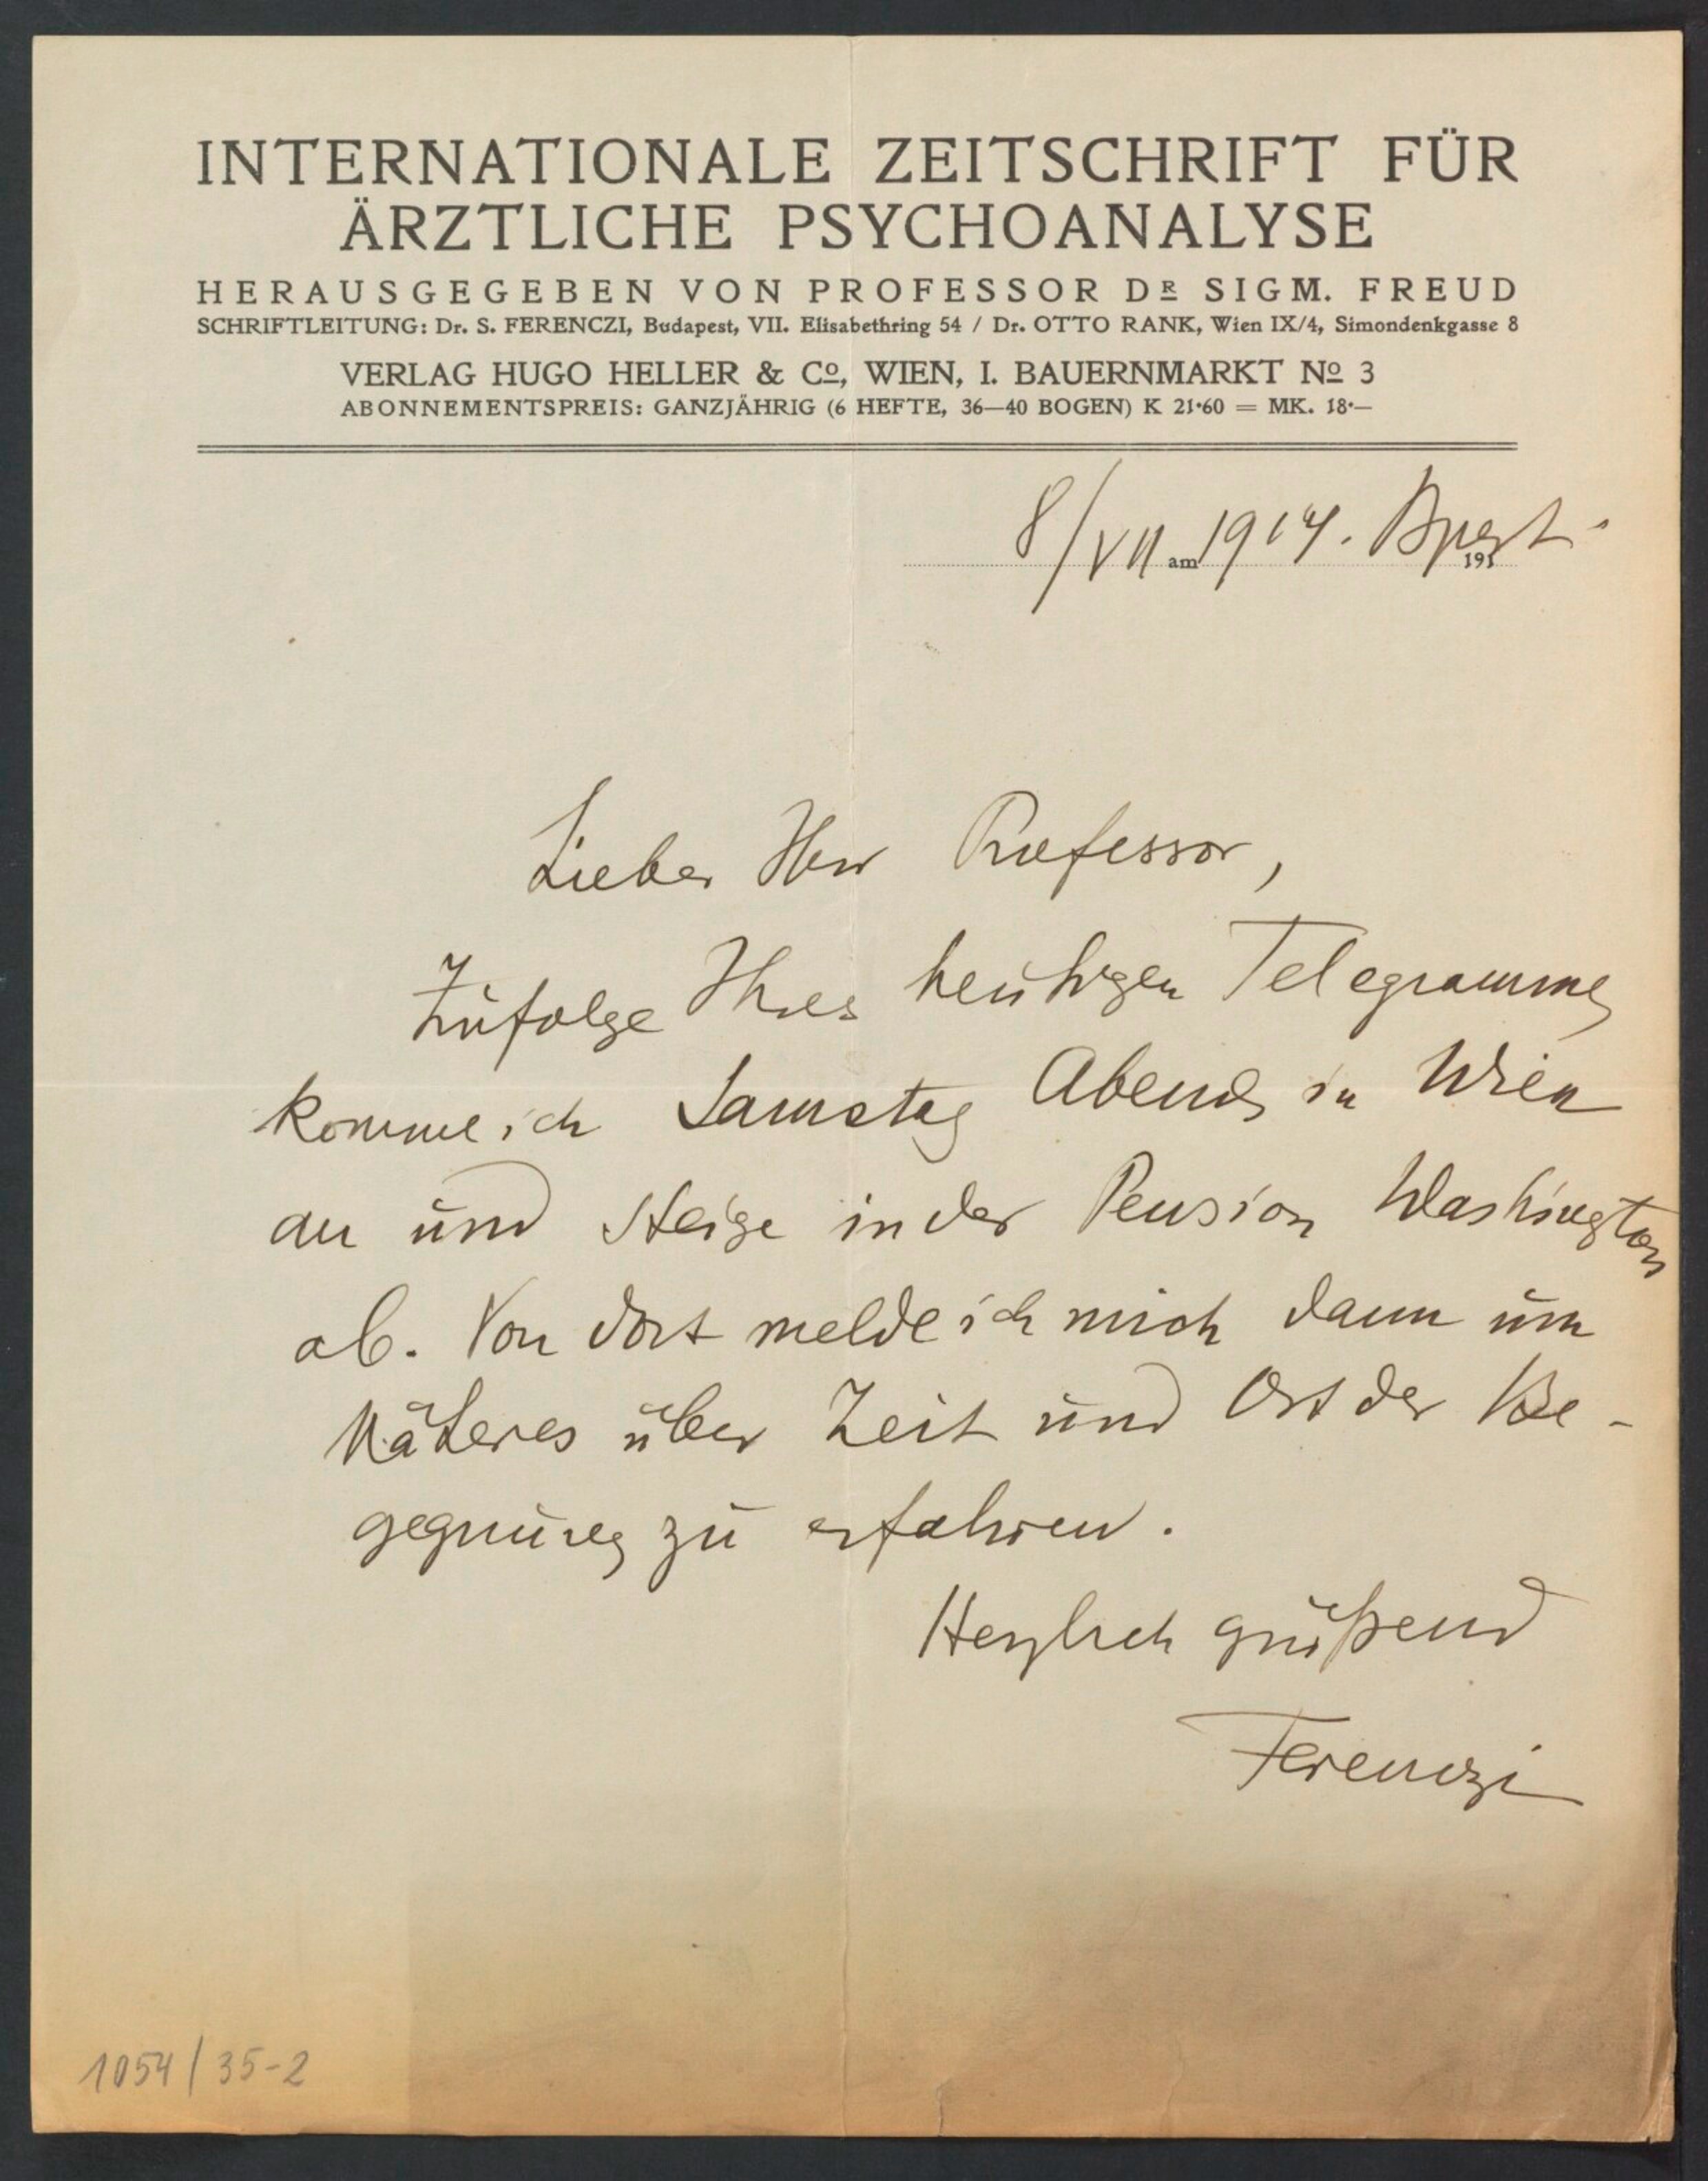 INTERNATIONALE ZEITSCHRIFT FÜR
ÄRZTLICHE PSYCHOANALYSE
HERAUSGEGEBEN VON PROFESSOR DR SIGM. FREUD
SCHRIFTLEITUNG: Dr. S. FERENCZI, Budapest, VII. Elisabethring 54 / Dr. OTTO RANK, Wien IX/4, Simondenkgasse 8
VERLAG HUGO HELLER & Co, WIEN, I. BAUERNMARKT No 3
ABONNEMENTSPREIS: GANZJÄHRIG (6 HEFTE, 36—40 BOGEN) K 21·60 = MK. 18·—
8/VII am 1914. Bpest. 191
Lieber Herr Professor,
Zufolge Ihres heutigen Telegrammes
komme ich Samstag Abends in Wien
an und steige in der Pension Washington
ab. Von dort melde ich mich dann um
Näheres über Zeit und Ort der Be-
gegnung zu erfahren.
Herzlich grüßend
Ferenczi
1054/35-2